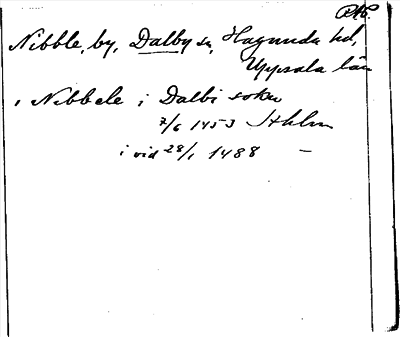 RAP.
Nibble, by, Dalby sn, Hagunda hd,
Uppsala län
i Nibbele i Dalbi sokn
7/6 1453 Sthlm
i vid 28/1 1488 —